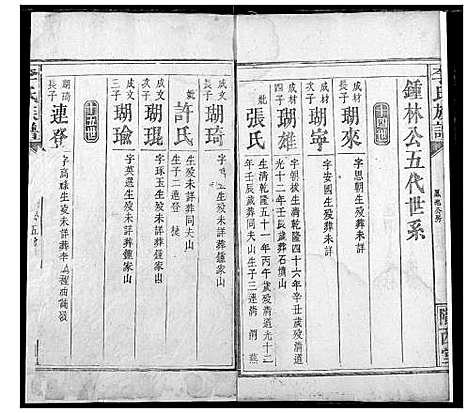 李氏族譜
鍾林公五代世系
十四世
成材長子
瑚來
字思朝生歿葬未詳
成材次子
瑚寧
字安國生歿葬未詳
成材四子
瑚雄
字朝拔生清乾隆四十六年辛丑歲歿清道光十二年壬辰歲葬石壙山
妣
張氏
生清乾隆五十一年丙午歲歿清道光十二年壬辰歲葬同夫山生子三連清
成文長子
瑚琦
字
妣
許氏
生歿未詳葬同夫山生子二連登 連
成文次子
瑚琨
字琢玉生歿未詳葬鍾家山
成文三子
瑚瑜
字英選生歿未詳葬鍾家山
十五世
瑚琦長子
連登
字高
生歿未詳葬李
李氏族譜